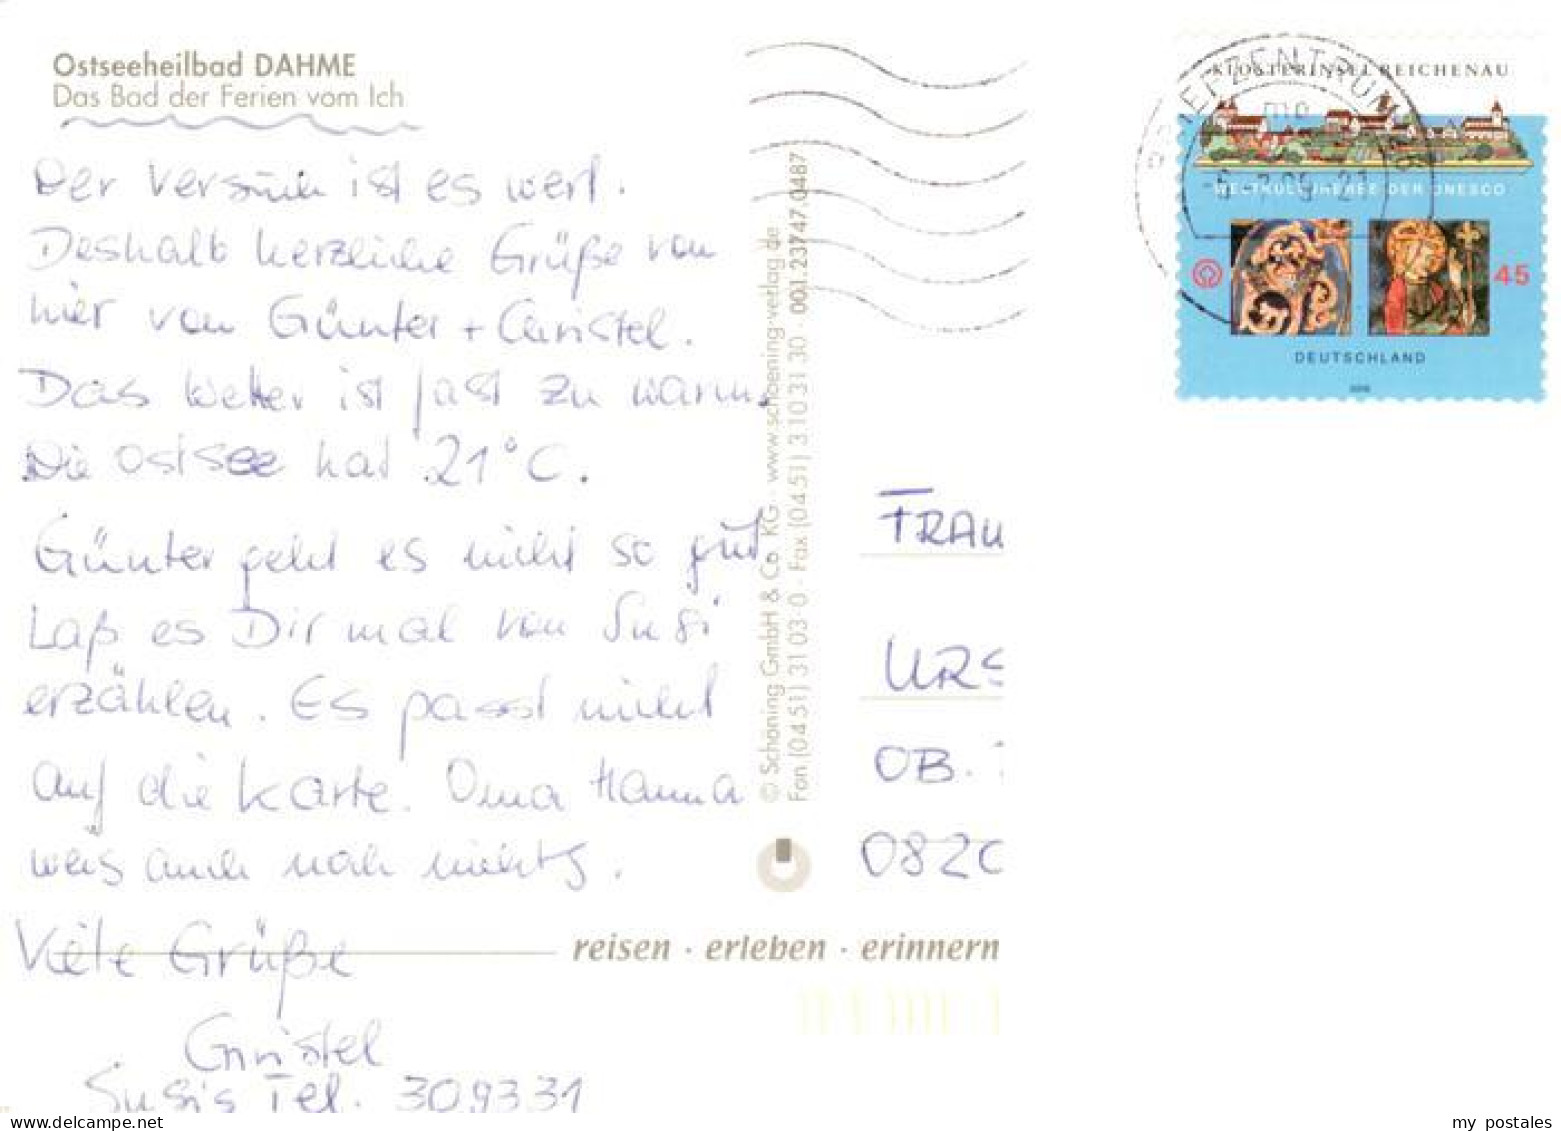 Ostseeheilbad DAHME
Das Bad der Ferien vom Ich
Der Versuch ist es wert.
Deshalb herzliche Grüße von
hier von Günter + Christel.
Das Wetter ist fast zu warm.
Die Ostsee hat 21°C.
Günter geht es nicht so gut
Laß es Dir mal von Susi
erzählen. Es passt nicht
auf die Karte. Oma Hanna
weis auch noch nichts.
Viele Grüße
Christel
Susis Tel. 309331
© Schöning GmbH & Co. KG · www.schoening-verlag.de
Fon (04 51) 31 03-0 · Fax (04 51) 3 10 31 30 · 001 23747 0487
reisen · erleben · erinnern
BRIEFZENTRUM
KLOSTERINSEL REICHENAU
WELTKULTURERBE DER UNESCO
45
DEUTSCHLAND
FRAU
URS
OB.
0820
my postales